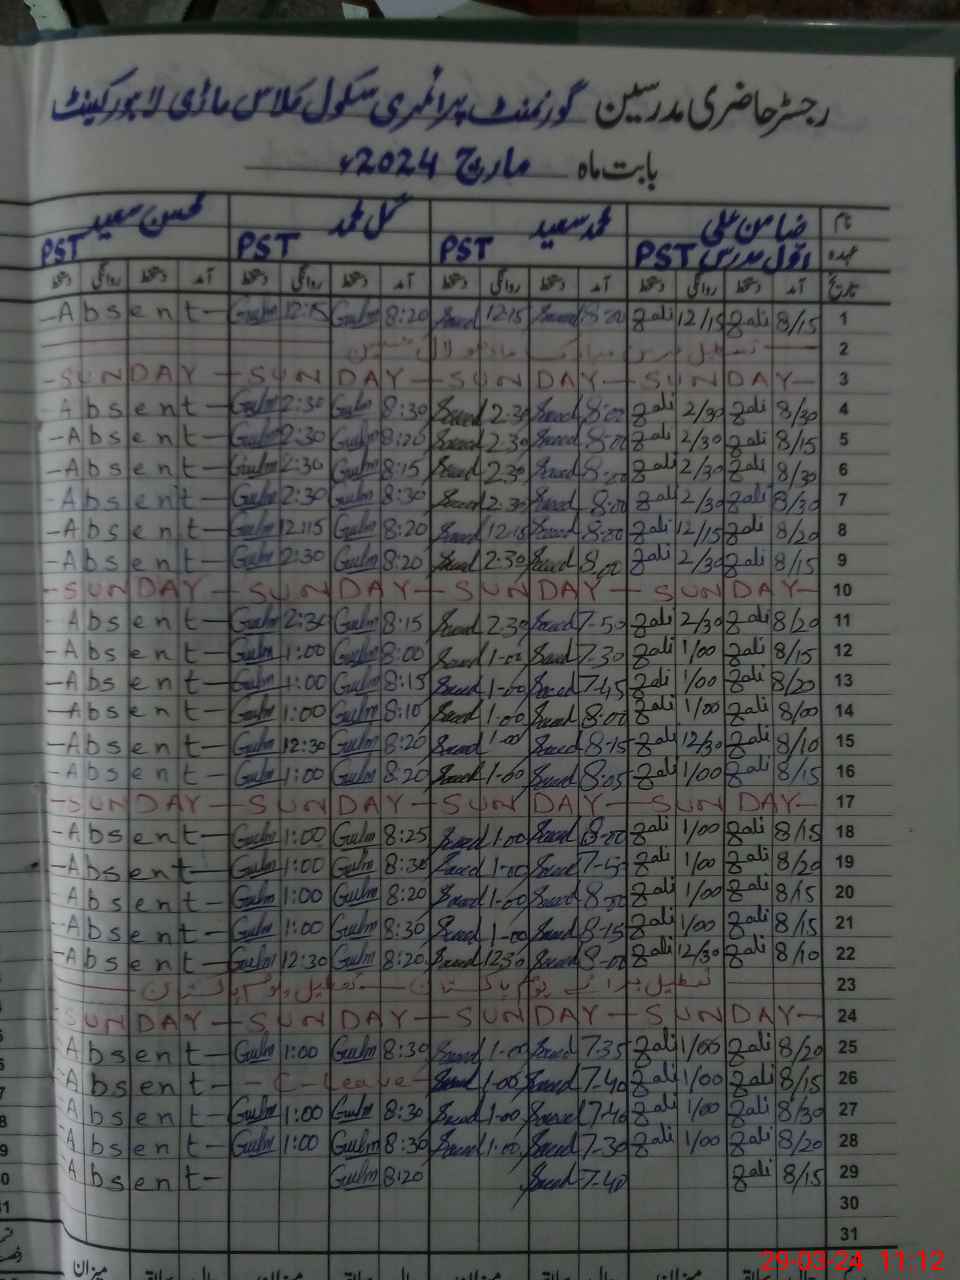 رجسٹر حاضری مدرسین گورنمنٹ پرائمری سکول کلاس ماڑی لاہور کینٹ
بابت ماہ مارچ 2024ء
نام ضامن علی محمد سعید گل محمد محسن سعید
عہدہ اول مدرس PST PST PST PST
تاریخ آمد دستخط روانگی دستخط آمد دستخط روانگی دستخط آمد دستخط روانگی دستخط آمد دستخط روانگی دستخط
-Absent- Gulm 12:15 Gulm 8:20 Saeed 12-15 Saeed 8-00 Zali 12/15 Zali 8/15 1
2
-SUNDAY-SUNDAY-SUNDAY-SUNDAY- 3
-Absent- Gulm 2:30 Gulm 8:30 Saeed 2-30 Saeed 8-00 Zali 2/30 Zali 8/30 4
-Absent- Gulm 2:30 Gulm 8:20 Saeed 2-30 Saeed 8-00 Zali 2/30 Zali 8/15 5
-Absent- Gulm 2:30 Gulm 8:15 Saeed 2-30 Saeed 8-00 Zali 2/30 Zali 8/30 6
-Absent- Gulm 2:30 Gulm 8:30 Saeed 2-30 Saeed 8-00 Zali 2/30 Zali 8/30 7
-Absent- Gulm 12:15 Gulm 8:20 Saeed 12-15 Saeed 8-00 Zali 12/15 Zali 8/20 8
-Absent- Gulm 2:30 Gulm 8:20 Saeed 2-30 Saeed 8-00 Zali 2/30 Zali 8/15 9
-SUNDAY-SUNDAY-SUNDAY-SUNDAY- 10
-Absent- Gulm 2:30 Gulm 8:15 Saeed 2-30 Saeed 7-50 Zali 2/30 Zali 8/20 11
-Absent- Gulm 1:00 Gulm 8:00 Saeed 1-00 Saeed 7-30 Zali 1/00 Zali 8/15 12
-Absent- Gulm 1:00 Gulm 8:15 Saeed 1-00 Saeed 7-45 Zali 1/00 Zali 8/20 13
-Absent- Gulm 1:00 Gulm 8:10 Saeed 1-00 Saeed 8-00 Zali 1/00 Zali 8/00 14
-Absent- Gulm 12:30 Gulm 8:20 Saeed 1-00 Saeed 8-15 Zali 12/30 Zali 8/10 15
-Absent- Gulm 1:00 Gulm 8:20 Saeed 1-00 Saeed 8-05 Zali 1/00 Zali 8/15 16
-SUNDAY-SUNDAY-SUNDAY-SUNDAY- 17
-Absent- Gulm 1:00 Gulm 8:25 Saeed 1-00 Saeed 8-00 Zali 1/00 Zali 8/15 18
-Absent- Gulm 1:00 Gulm 8:30 Saeed 1-00 Saeed 7-50 Zali 1/00 Zali 8/20 19
-Absent- Gulm 1:00 Gulm 8:20 Saeed 1-00 Saeed 8-00 Zali 1/00 Zali 8/15 20
-Absent- Gulm 1:00 Gulm 8:30 Saeed 1-00 Saeed 8-15 Zali 1/00 Zali 8/15 21
-Absent- Gulm 12:30 Gulm 8:20 Saeed 12-30 Saeed 8-00 Zali 12/30 Zali 8/10 22
تعطیل برائے یوم پاکستان — تعطیل یوم پاکستان 23
-SUNDAY-SUNDAY-SUNDAY-SUNDAY- 24
-Absent- Gulm 1:00 Gulm 8:30 Saeed 1-00 Saeed 7-35 Zali 1/00 Zali 8/20 25
-Absent- -C-Leave- Saeed 1-00 Saeed 7-40 Zali 1/00 Zali 8/15 26
-Absent- Gulm 1:00 Gulm 8:30 Saeed 1-00 Saeed 7-40 Zali 1/00 Zali 8/30 27
-Absent- Gulm 1:00 Gulm 8:30 Saeed 1-00 Saeed 7-30 Zali 1/00 Zali 8/20 28
-Absent- Gulm 8:20 Saeed 7-40 Zali 8/15 29
30
31
میزان
29-03-24 11:12